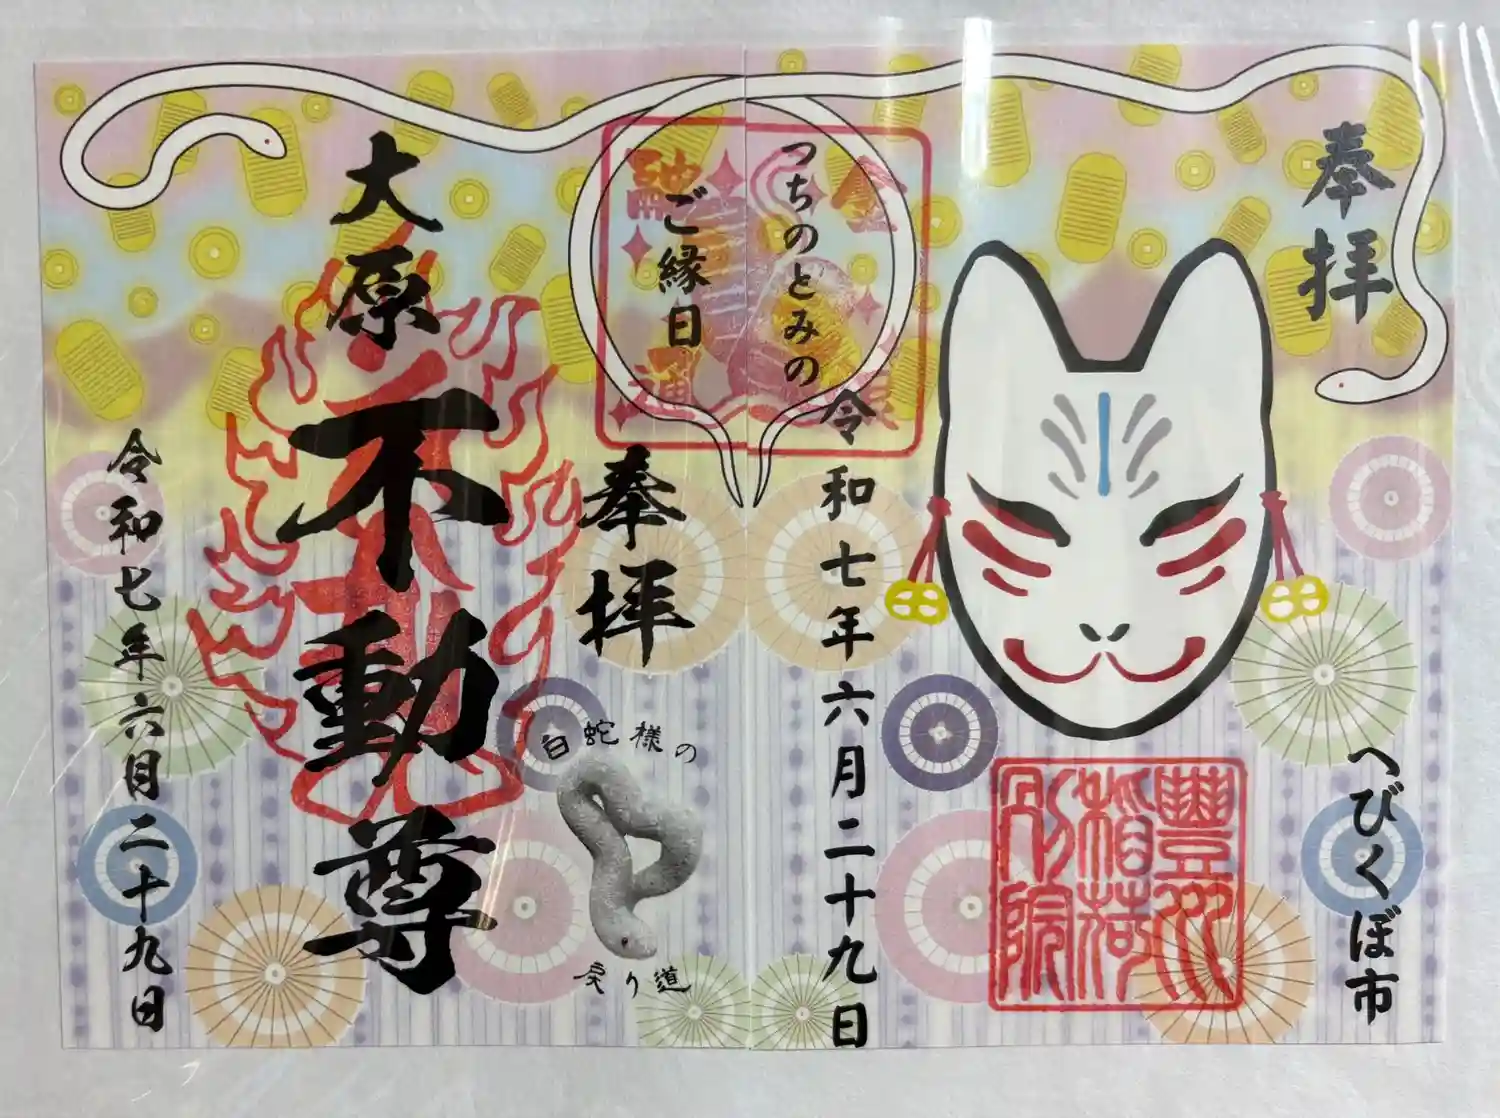 奉拝
へびくぼ市
豐川
稲荷
別院
令和七年六月二十九日
つちのとみの
ご縁日
融通
奉拝
白蛇様の
戻り道
大原
不動尊
令和七年六月二十九日